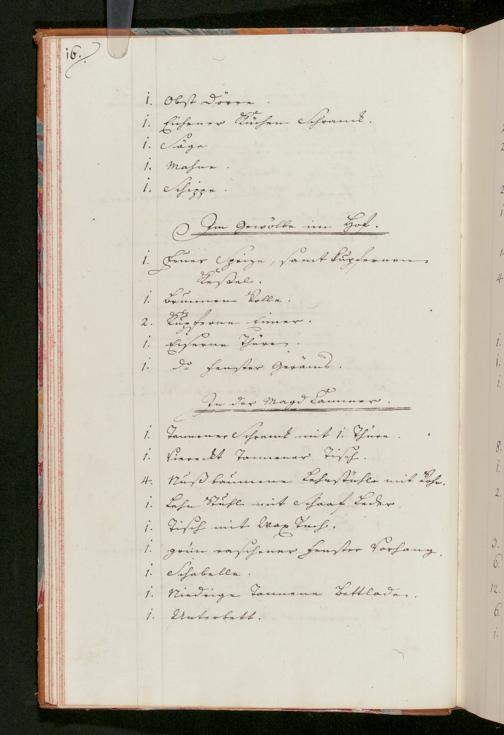 16.
1. Obst Dörre.
1. Eichener Küchen Schranck.
1. Säge
1. Mahne.
1. Schippe.
Im Gewölbe im Hof.
1. Feuer Spritze, samt kupfernem
Keßel.
1. Brunnen Rolle.
2. Kupferne Eimer.
1. Eiserne Thüre.
1. do Fenster Geräms.
In der Magd Cammer.
1. Tannener Schranck mit 1. Thüre.
1. Viereckt Tannener Tisch.
4. Nußbaumene Lehnstühle mit Rohr.
1. Lehn Stuhl mit Schaaf Leder.
1. Tisch mit Wax Tuch.
1. grün raschener Fenster Vorhang.
1. Schabelle.
1. Niedrige Tannene Bettladen.
1. Unterbett.